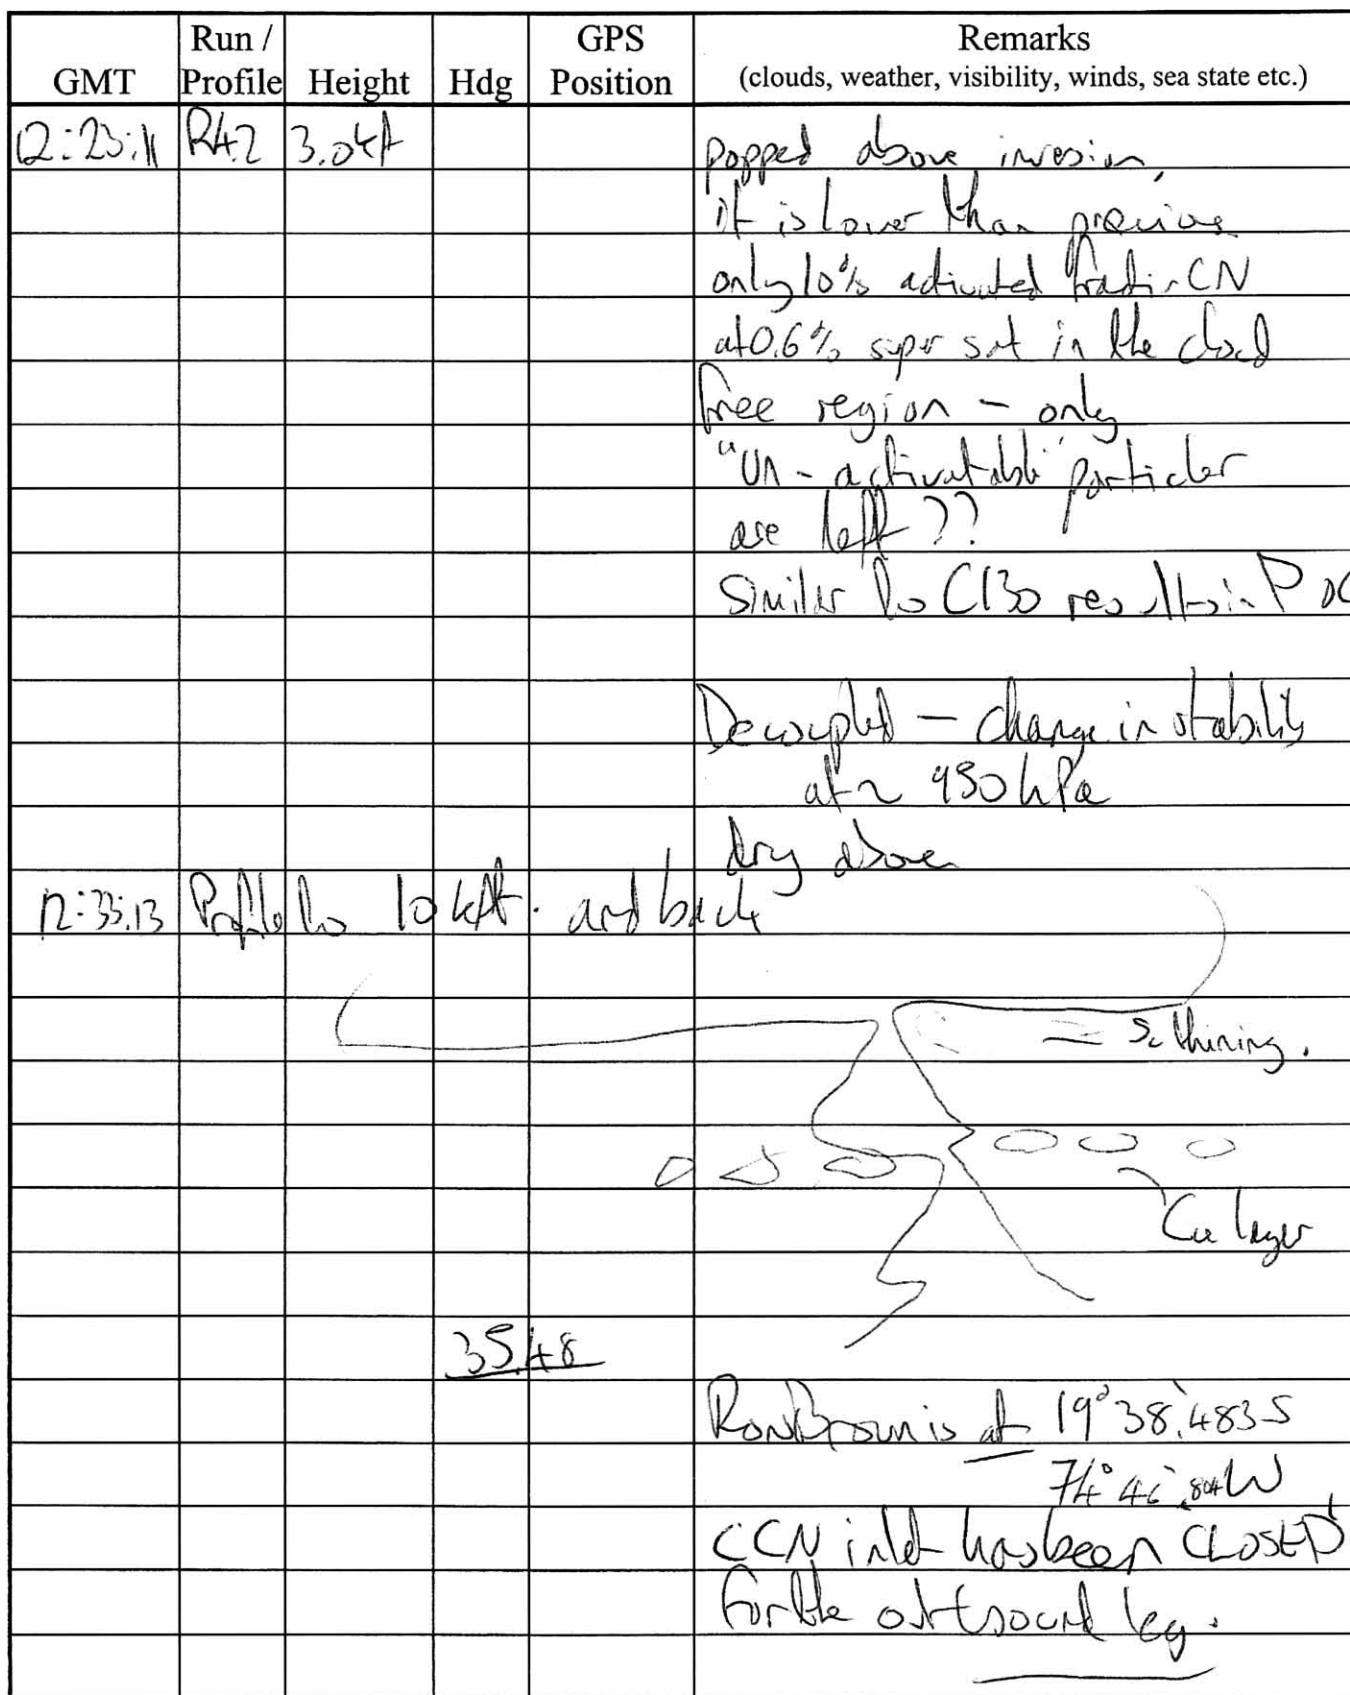 GMT Run / Profile Height Hdg GPS Position Remarks
(clouds, weather, visibility, winds, sea state etc.)
12:23:11 R4.2 3.0kft popped above inversion,
it is lower than previous
only 10% activated fraction CN
at 0.6% super sat in the cloud
free region - only
"un-activatable" particles
are left ??
Similar to C130 results in POC
Decoupled - change in stability
at ~ 950 hPa
dry above
12:33:13 Profile to 10 kft. and back
= Sc thining.
Cu layer
35.48
Ron Brown is at 19° 38.483 S
74° 46.804 W
CCN inlet has been CLOSED
for the outbound leg.